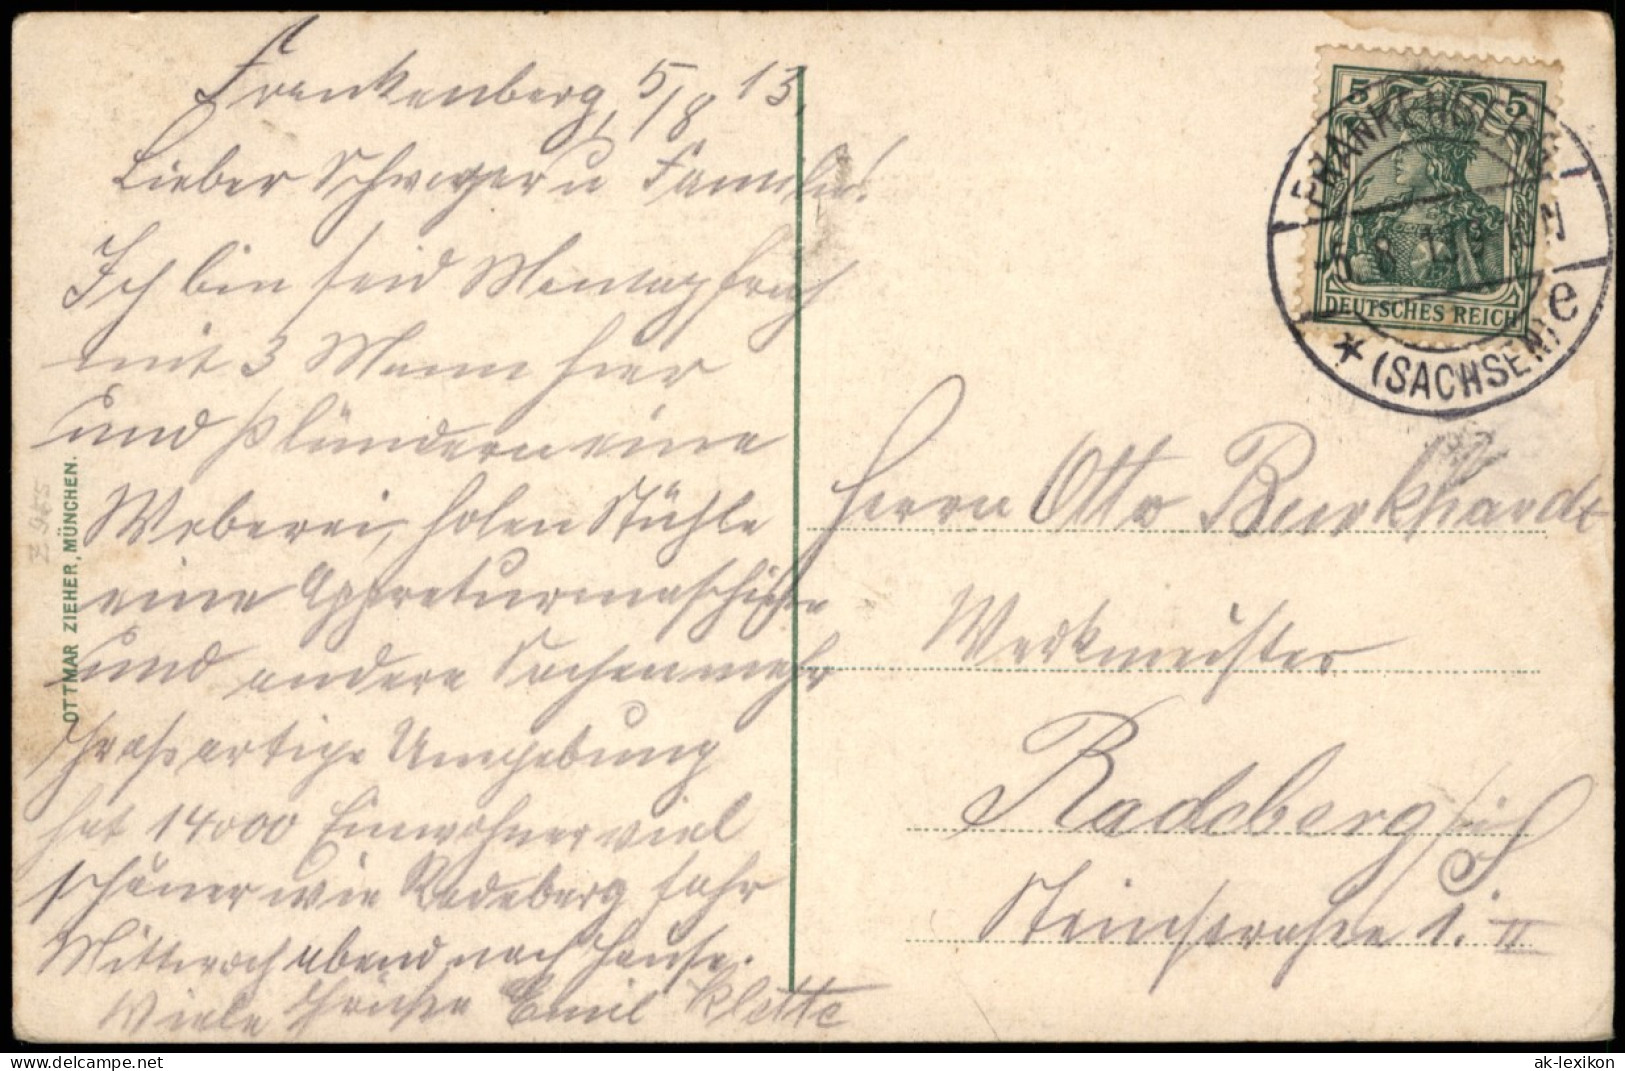 Frankenberg, 5/8 13.
Lieber Schwager u Familie!
Ich bin seid Montagfrüh
mit 3 Mann hier
und plündern eine
Weberei, holen Stühle
eine Appreturmaschine
und andere Sachen mehr
Großartige Umgebung
hat 14000 Einwohner viel
schöner wie Radeberg fahr
Mittwoch abend nach Hause.
Viele Grüße Emil Klette
OTTMAR ZIEHER, MÜNCHEN.
Z 965
5 5
DEUTSCHES REICH
FRANKENBERG
5 8 13 9-10 N
* (SACHSEN) e
Herrn Otto Burkhardt
Werkmeister
Radeberg i/S
Steinstraße 1. II
delcampe.net
ak-lexikon